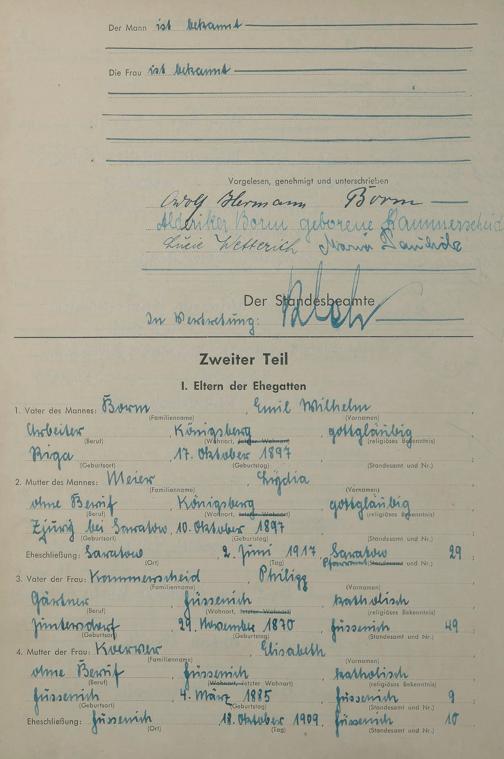 Der Mann ist bekannt
Die Frau ist bekannt
Vorgelesen, genehmigt und unterschrieben
Adolf Hermann Borm
Borm geborene Kammerscheid
Lucie Wetterich Maria
Der Standesbeamte
In Vertretung:
Zweiter Teil
I. Eltern der Ehegatten
1. Vater des Mannes: Borm, Emil Wilhelm
(Familienname) (Vornamen)
Arbeiter, Königsberg, gottgläubig
(Beruf) (Wohnort, letzter Wohnort) (religiöses Bekenntnis)
Riga, 17. Oktober 1897
(Geburtsort) (Geburtstag) (Standesamt und Nr.)
2. Mutter des Mannes: Meier, Lydia
(Familienname) (Vornamen)
ohne Beruf, Königsberg, gottgläubig
(Beruf) (Wohnort, letzter Wohnort) (religiöses Bekenntnis)
bei Saratow, 10. Oktober 1897
(Geburtsort) (Geburtstag) (Standesamt und Nr.)
Eheschließung: Saratow 2. Juni 1917, Saratow 29
(Ort) (Tag) (Standesamt und Nr.)
3. Vater der Frau: Kammerscheid, Philipp
(Familienname) (Vornamen)
Gärtner, Füssenich, katholisch
(Beruf) (Wohnort, letzter Wohnort) (religiöses Bekenntnis)
Jüntersdorf, 29. November 1870, Füssenich 49
(Geburtsort) (Geburtstag) (Standesamt und Nr.)
4. Mutter der Frau: Koerver, Elisabeth
(Familienname) (Vornamen)
ohne Beruf, Füssenich, katholisch
(Beruf) (Wohnort, letzter Wohnort) (religiöses Bekenntnis)
Füssenich, 4. März 1885, Füssenich 9
(Geburtsort) (Geburtstag) (Standesamt und Nr.)
Eheschließung: Füssenich, 18. Oktober 1909, Füssenich 10
(Ort) (Tag) (Standesamt und Nr.)